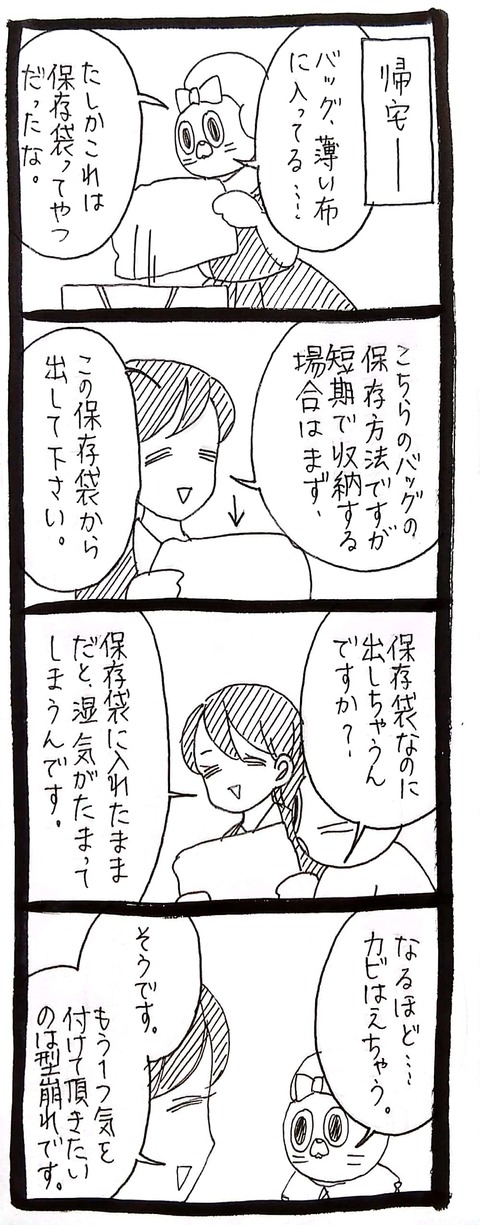 帰宅ー
バッグ、薄い布
に入ってる…
たしかこれは
保存袋ってやつ
だったな。
こちらのバッグの
保存方法ですが
短期で収納する
場合はまず、
この保存袋から
出して下さい。
保存袋なのに
出しちゃうん
ですか?
保存袋に入れたまま
だと、湿気がたまって
しまうんです。
なるほど…
カビはえちゃう。
そうです。
もう1つ気を
付けて頂きたい
のは型崩れです。